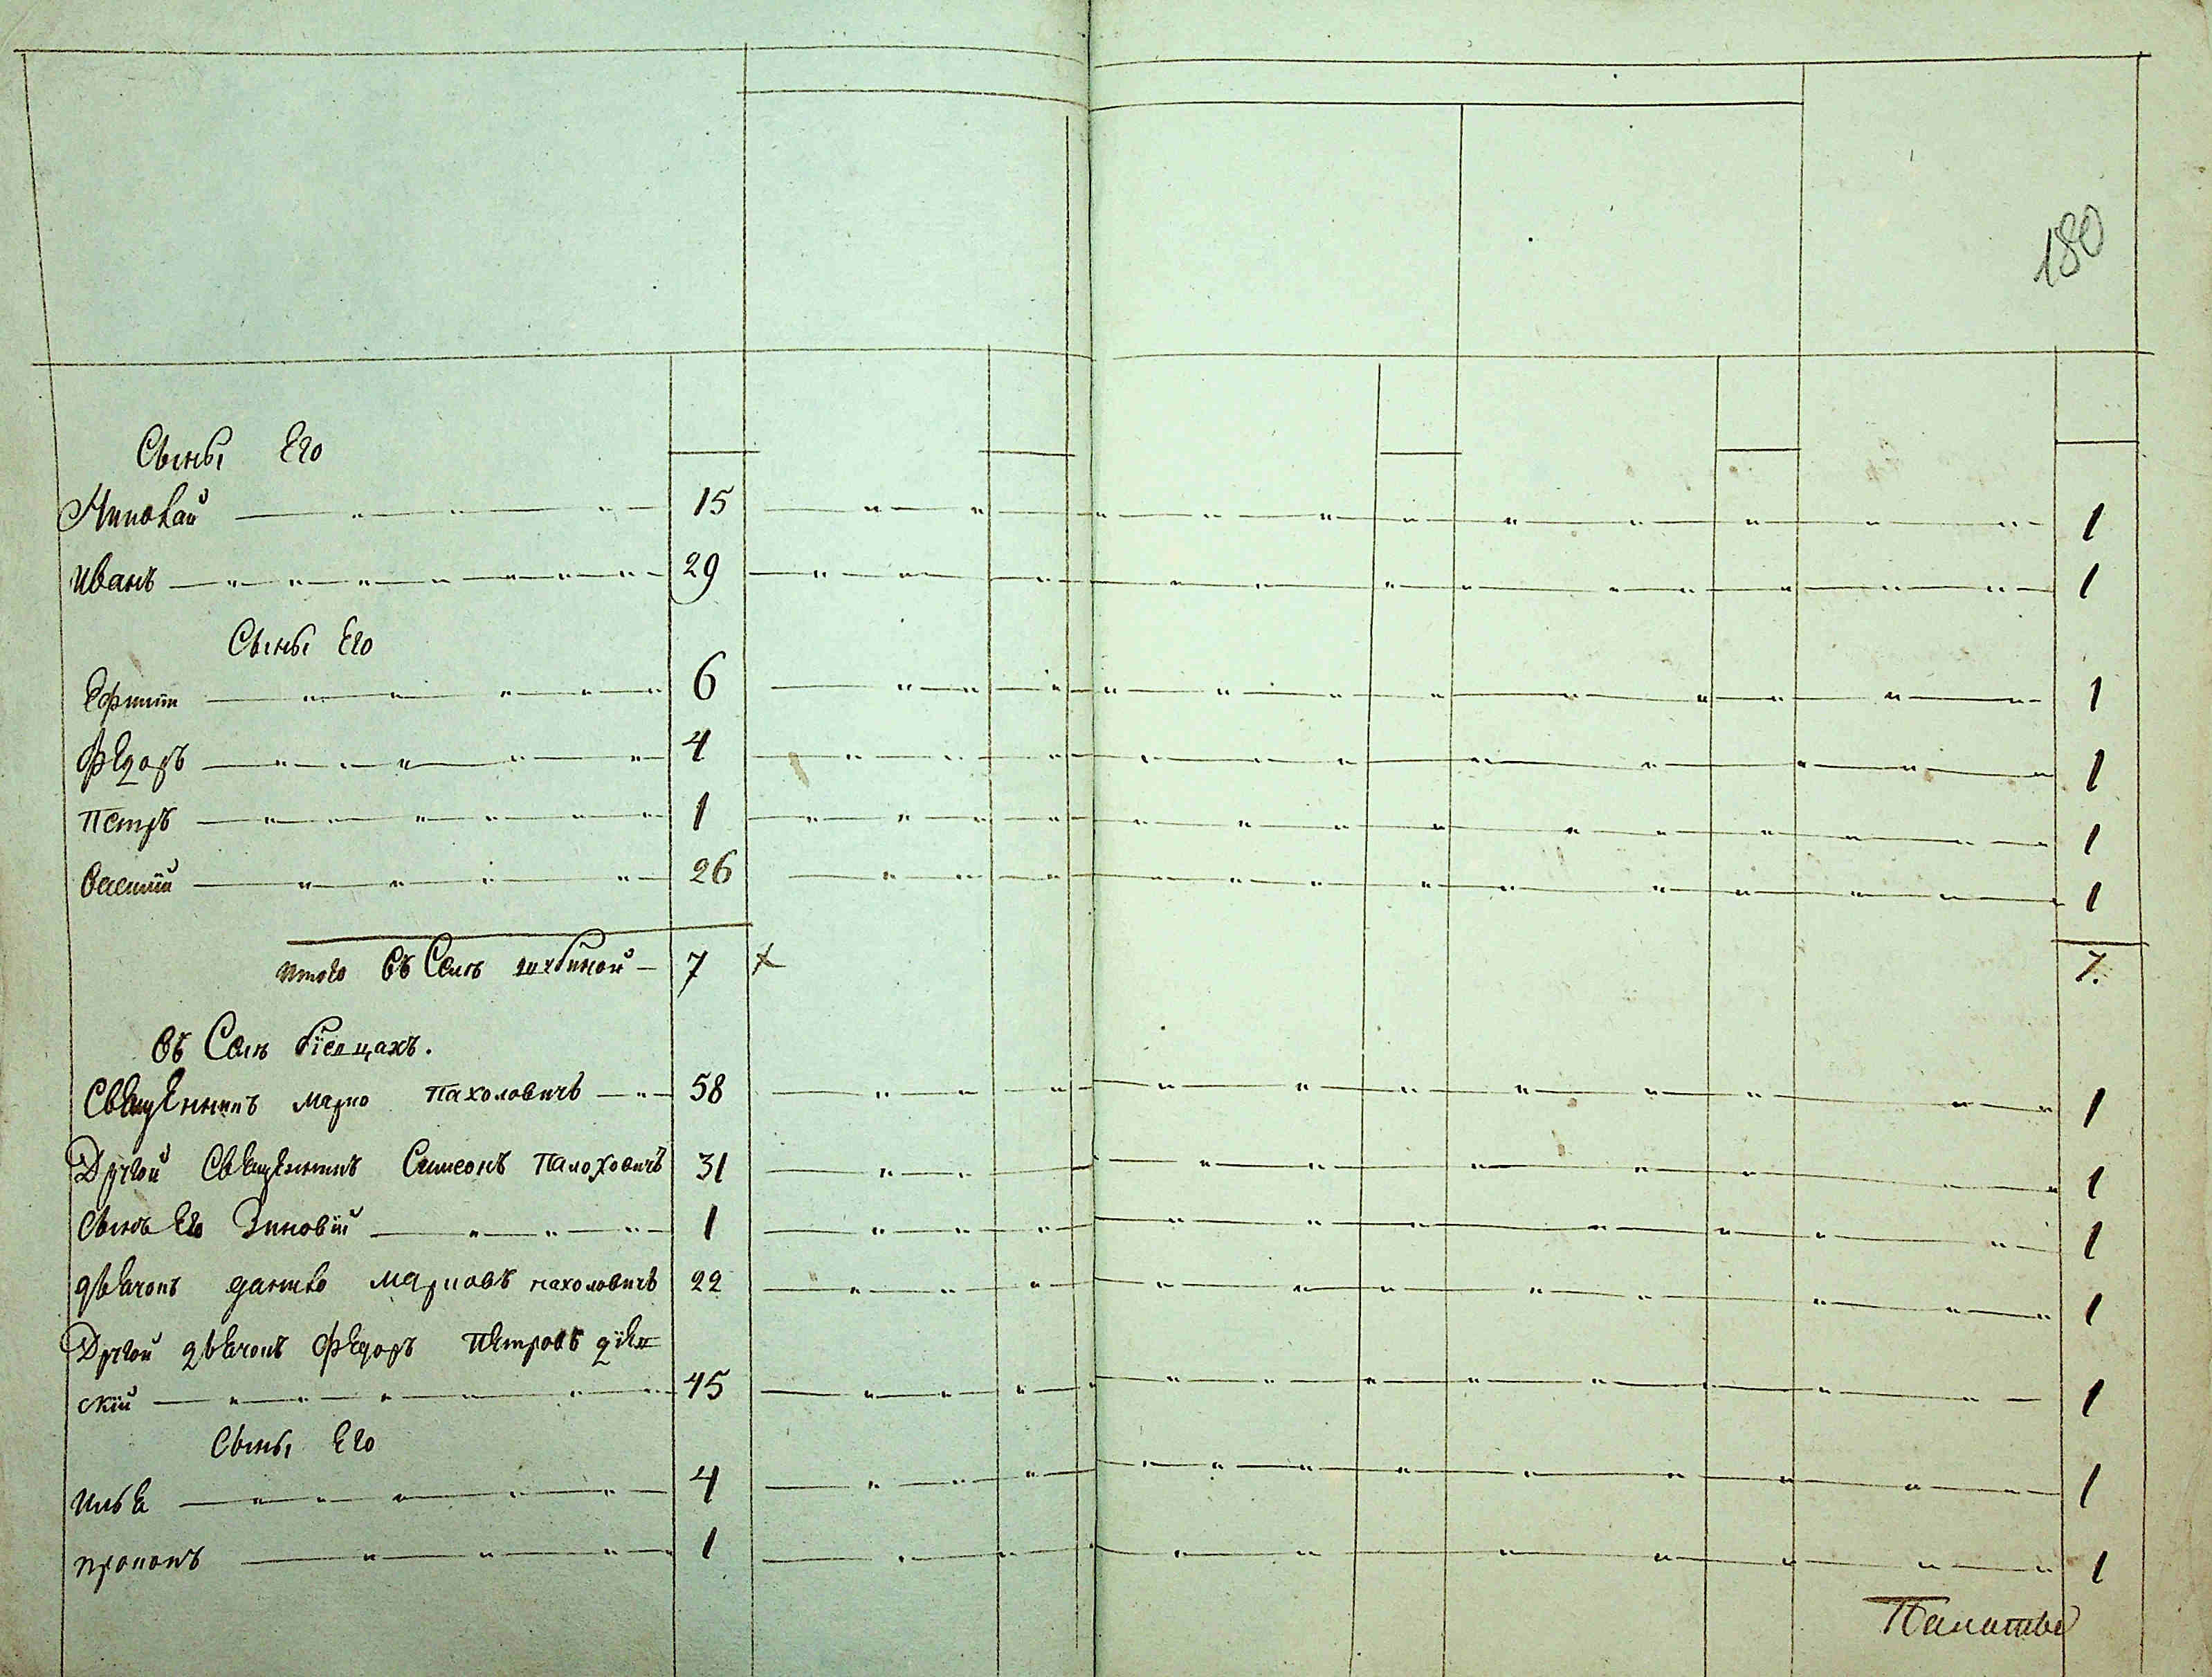 180
Сыны Его
Николай 15 1
Иванъ 29 1
Сыны Его
Ефимій 6 1
Федоръ 4 1
Петръ 1 1
Василій 26 1
итого въ Селѣ 7 х 7.
Въ Селѣ
Священникъ Марко Пахоловичъ 58 1
Другой Священникъ Симеонъ Пахоловичъ 31 1
Сынъ Его Зиновій 1 1
дьячокъ данило Марковъ пахоловичъ 22 1
Другой дьячокъ Федоръ Петровъ
скій 45 1
Сыны Его
илья 4 1
прокопъ 1 1
Палаты